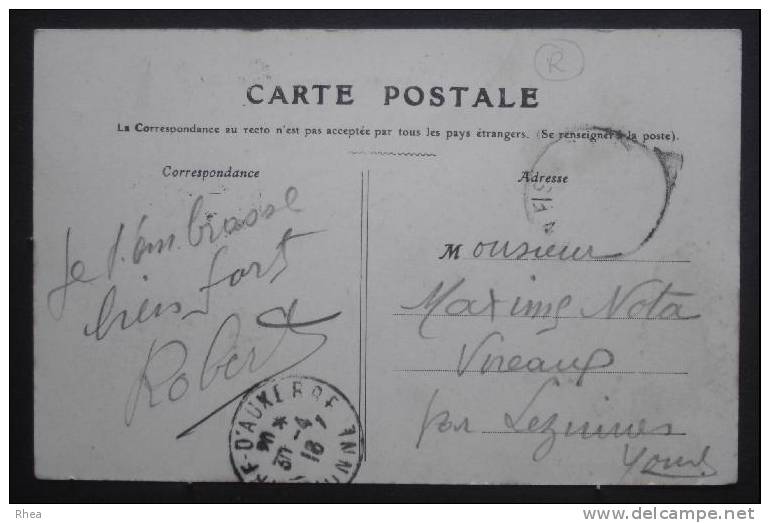 R
CARTE POSTALE
La Correspondance au recto n'est pas acceptée par tous les pays étrangers. (Se renseigner à la poste).
Correspondance
Je t'embrasse
bien fort
Robert
Adresse
Monsieur
Maxime Nota
Vireaux
par Lezinnes
Yonne
D'AUXERRE
30-4
18
Rhea
delcampe.net